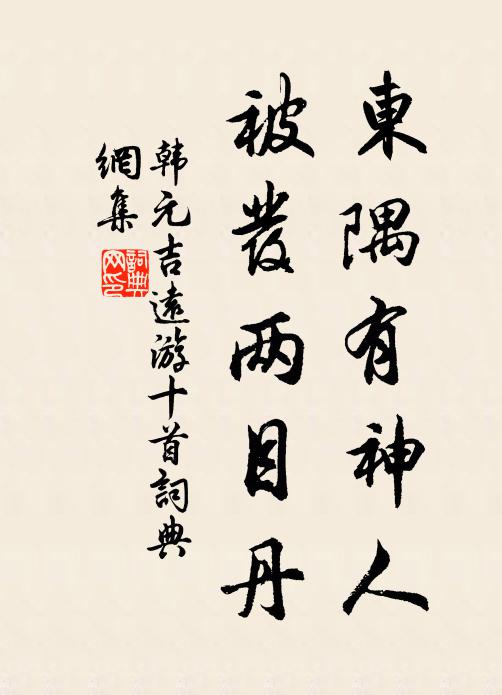 東隅有神人
被發两目丹
韩元吉遠游十首詞典
網集
詞典
网印